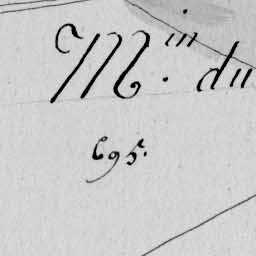 M.in du
695.